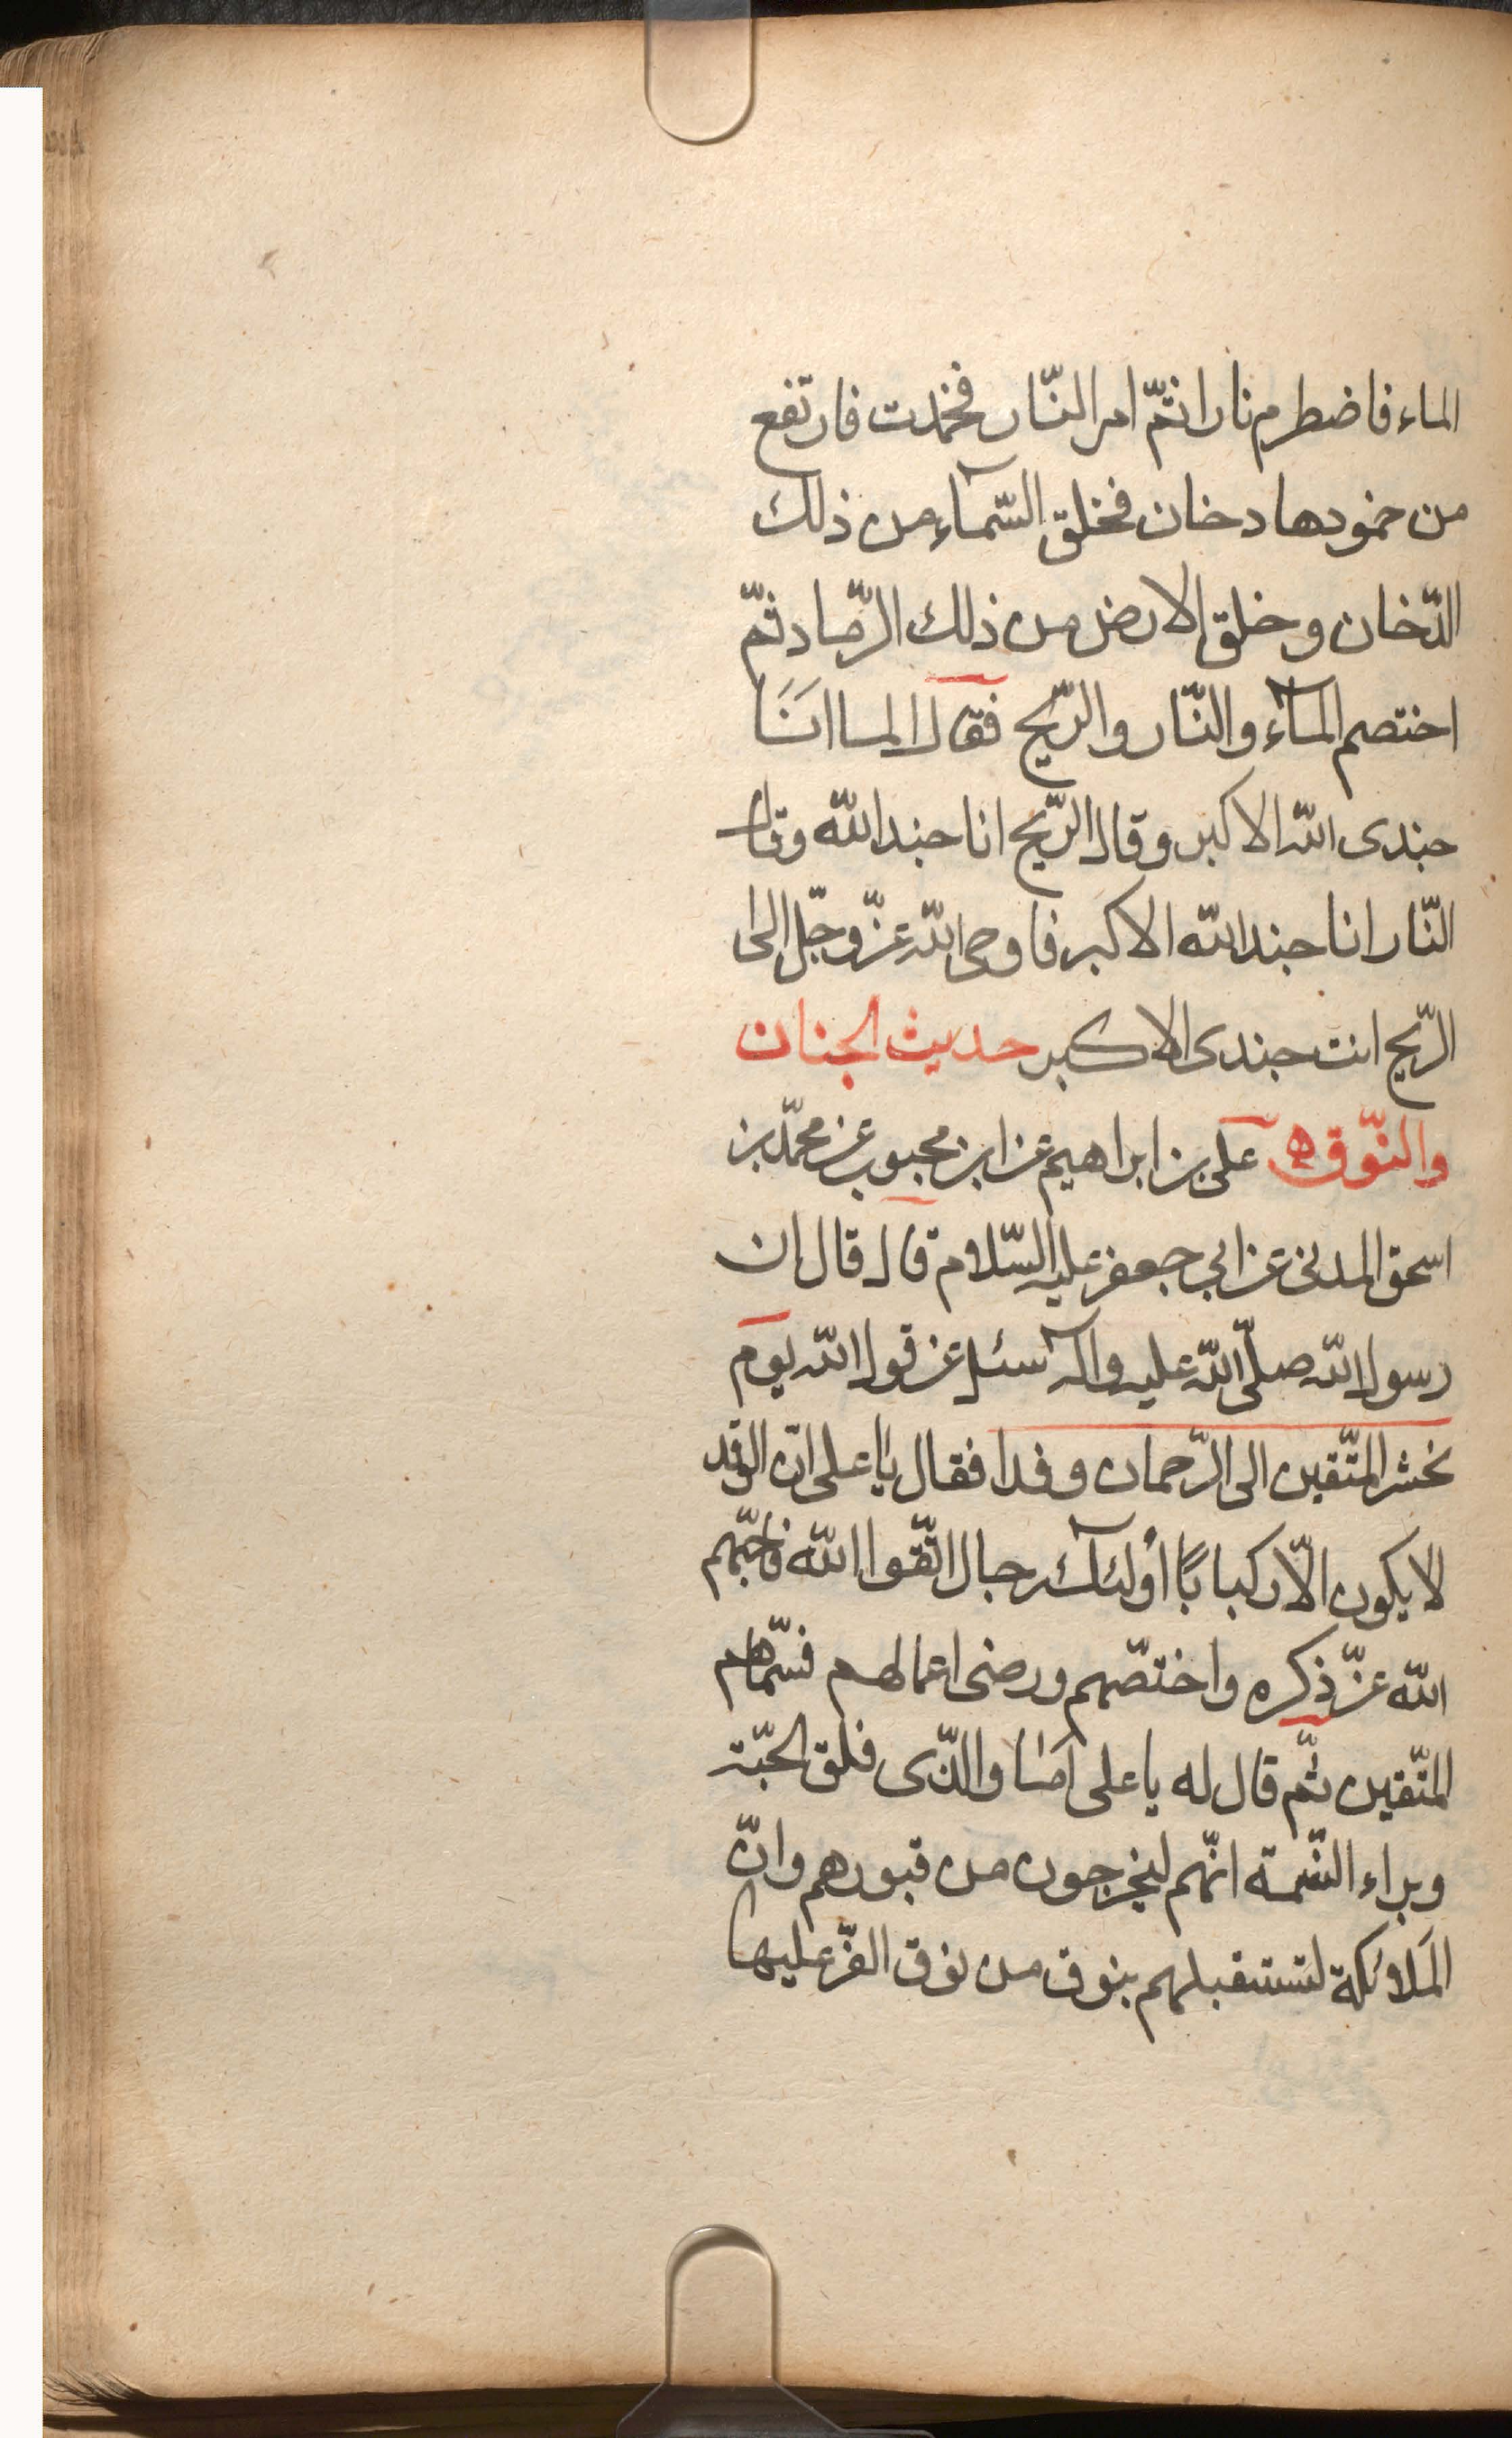 الماء فاضطرم نارا ثمّ امر النّار فخمدت فارتفع
من خمودها دخان فخلق السّمآء من ذلك
الدّخان وخلق الارض من ذلك الرّماد ثمّ
اختصم المآء والنّار والرّيح فقال الماا اَنَا
جندى الله الاكبر وقال الرّيح انا جند الله وقال
النّار انا جند الله الاكبر فاوحى الله عزّ وجّل الى
الرّيح انت جندى الاكبر حديث الجنان
والنّوق ه على بن ابراهيم عن ابن محبوب عن محمّد بن
اسحق المدنى عن ابي جعفر عليه السّلام قال قال ان
رسول الله صلّى الله عليه وآله سئل عن قول الله يوم
نحشر المتّقين الى الرّحمان وفدا فقال يا على انّ الوفد
لا يكون الّا ركبابًا أولئآك رجال اتّقوا الله فاحبّهم
الله عزّ ذكره واختصّهم ورضى اعمالهم فسمّاهم
المتّقين ثمّ قال له يا على اما والذّى فلق الحبّة
وبراء النسّمة انّهم ليخرجون من قبورهم وانّ
المَلائكة لتستقبلهم بنوق من نوق الغّر عليها